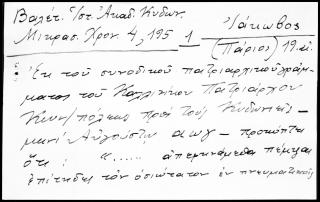 Βαλέτ. Ἱστ. Ἀκαδ. Κυδων. Ἰάκωβος
Μικρασ. Χρον. 4, 195 1 (Πάριος) 19. αἰ.
Ἐκ τοῦ συνοδικοῦ πατριαρχικοῦ γράμ-
ματος τοῦ Καλλινίκου Πατριάρχου
Κων/πόλεως πρὸς τοὺς Κυδωνιεῖς –
μηνὶ Αὐγούστῳ αωγ – προκύπτει
ὅτι : " ..... ἀπεκρινάμεθα πέμψαι
ἐπίτηδες τὸν ὁσιώτατον ἐν πνευματικοῖς